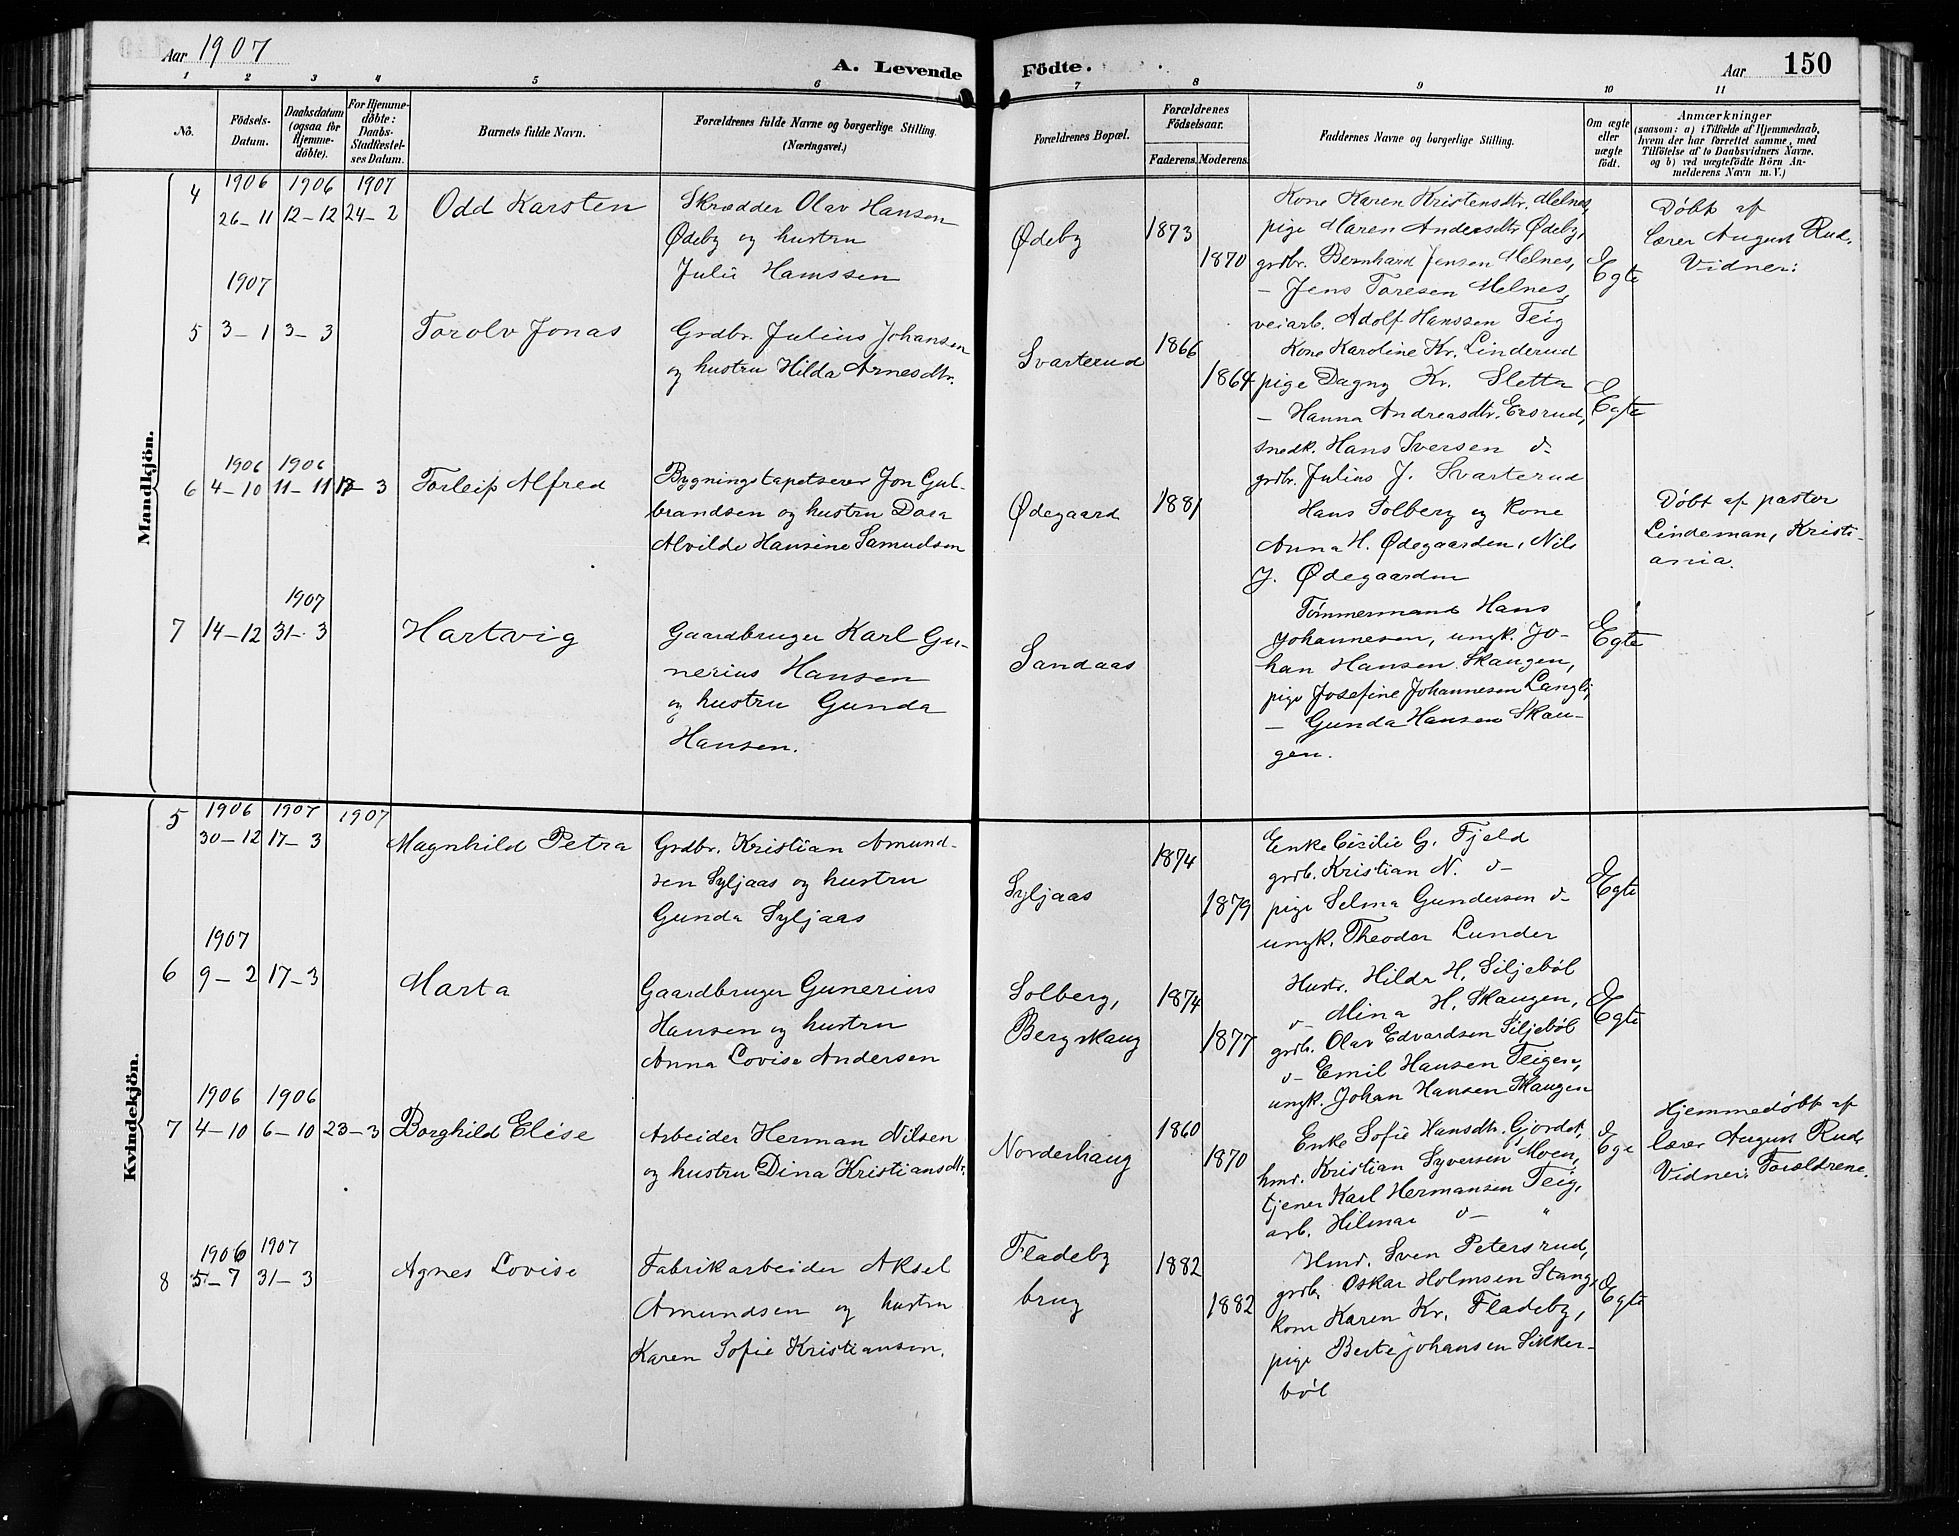 Aar 1907
A. Levende
Födte.
Aar 150
1 2 3 4 5 6 7 8 9 10 11
No.
Födsels-
Datum.
Daabsdatum
(ogsaa for
Hjemme-
døbte).
For Hjemme-
døbte:
Daabs-
Stadfæstel-
ses Datum.
Barnets fulde Navn.
Forældrenes fulde Navne og borgerlige Stilling.
(Næringsvei.)
Forældrenes Bopæl.
Forældrenes
Födselsaar.
Faderens. Moderens.
Faddernes Navne og borgerlige Stilling.
Om ægte
eller
uægte
født.
Anmærkninger
(saasom: a) i Tilfælde af Hjemmedaab,
hvem der har forrettet samme, med
Tilföielse af to Daabsvidners Navne.
og b) ved uægtefödte Börn An-
melderens Navn m. V.)
Mandkjön.
4
1906 1906 1907
26-11 12-12 24-2
Odd Karsten
Skrædder Olav Hansen
Ødeby og hustru
Julie Hanssen
Ødeby
1873
1870
Kone Karen Kristensdtr. Melnes,
pige Maren Andersdtr Ødeby,
grdbr. Bernhard Jensen Melnes,
— Jens Toresen Melnes,
veiarb. Adolf Hanssen Teig
Egte
Døbt af
lærer August Rud.
Vidner:
1907
5 3-1 3-3
Torolv Jonas
Grdbr. Julius Johansen
og hustru Hilda Arnesdtr.
Svarterud
1866
1864
Kone Karoline Kr. Linderud
pige Dagny Kr. Sletta
— Hanna Andreasdtr. Ersrud,
snedk. Hans Iversen d-
grdb. Julius J. Svarterud
Egte
1906 1906
6 4-10 11-11 17-3
Torleif Alfred
Bygningstapetserer Jon Gul-
brandsen og hustru Dora
Alvilde Hansine Samudsen
Ødegaard
1881
Hans Solberg og kone
Anna H. Ødegaarden, Nils
J. Ødegaarden
Døbt af pastor
Lindeman, Kristi-
ania.
1907
7 14-12 31-3
Hartvig
Gaardbruger Karl Gu-
nerius Hansen
og hustru Gunda
Hansen.
Sandaas
Tömmermand Hans
Johannesen, ungk. Jo-
han Hansen Skaugen,
pige Josefine Johannesen Langli,
— Gunda Hansen Skau-
gen.
Egte
Kvindekjön.
5
1906 1907 1907
30-12 17-3
Magnhild Petra
Grdbr. Kristian Amund-
sen Syljaas og hustru
Gunda Syljaas
Syljaas
1874
1879
Enke Cisilie G. Fjeld
grdb. Kristian N. d-
pige Selma Gundersen d-
ungk. Theodor Lunder
Egte
1907
6 9-2 17-3
Marta
Gaardbruger Gunerius
Hansen og hustru
Anna Lovise Andersen
Solberg,
Bergskaug
1874
1877
Hustr. Hilda H. Siljeböl
d- Mina H. Skaugen,
grdb. Olav Edvardsen Siljeböl
d- Emil Hansen Teigen,
ungk. Johan Hansen Skaugen
Egte
1906 1906
7 4-10 6-10 23-3
Borghild Elise
Arbeider Herman Nilsen
og hustru Dina Kristiansdtr.
Norderhaug
1860
1870
Enke Sofie Hansdtr. Gjordet,
hmd. Kristian Syversen Moen,
tjener Karl Hermansen Teig,
arb. Hilmar d- "
Egte
Hjemmedøbt af
lærer August Rud
Vidner: Forældrene.
1906 1907
8 5-7 31-3
Agnes Lovise
Fabrikarbeider Aksel
Amundsen og hustru
Karen Sofie Kristiansen.
Fladeby
brug
1882
1882
Hmd. Sven Petersrud,
grdb. Oskar Holmsen Stang,
kone Karen Kr. Fladeby,
pige Berte Johansen Sikker-
böl
Egte